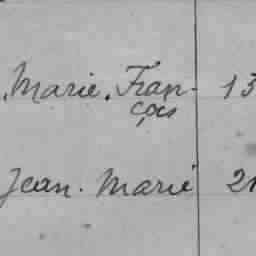 Marie. Fran- 13
çois
Jean. Marie